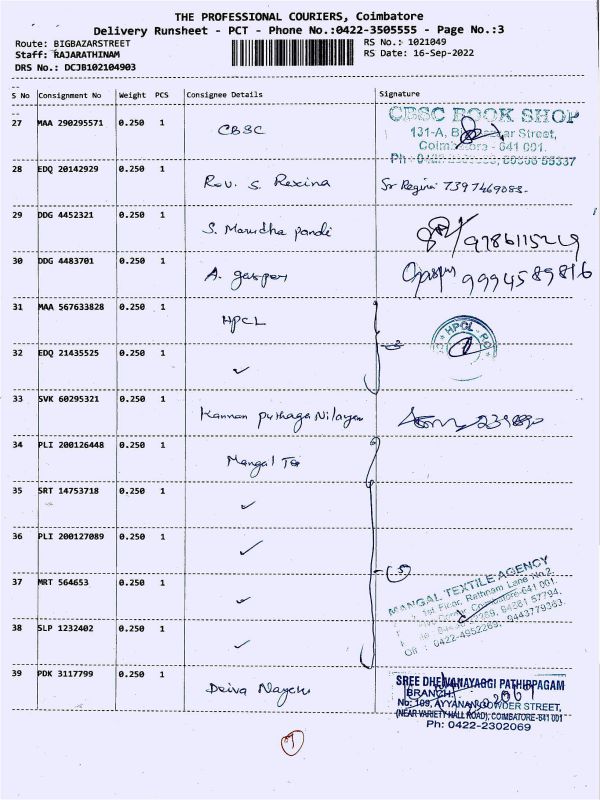 THE PROFESSIONAL COURIERS, Coimbatore
Delivery Runsheet - PCT - Phone No.:0422-3505555 - Page No.:3
Route: BIGBAZARSTREET RS No.: 1021049
Staff: RAJARATHINAM RS Date: 16-Sep-2022
DRS No.: DCJB102104903
S No Consignment No Weight PCS Consignee Details Signature
27 MAA 290295571 0.250 1 CBSC CBSC BOOK SHOP
131-A, Street,
Coimbatore - 641 001.
Ph
28 EDQ 20142929 0.250 1 Rev. S. Rexina Sr Regina 7397469083.
29 DDG 4452321 0.250 1 S. Marudha pandi 9786115219
30 DDG 4483701 0.250 1 A. gasper Gaspar 9994589816
31 MAA 567633828 0.250 1 HPCL HPCL RO
32 EDQ 21435525 0.250 1 ✓ 2
33 SVK 60295321 0.250 1 Kannan puthaga Nilayam
34 PLI 200126448 0.250 1 Mangal Tex
35 SRT 14753718 0.250 1 ✓
36 PLI 200127089 0.250 1 ✓
37 MRT 564653 0.250 1 ✓ 5 MANGAL TEXTILE AGENCY
1st Floor, Rathnam Lane No.2,
Coimbatore-641 001.
94281 57794,
Off : 0422-4952269, 9443779363.
38 SLP 1232402 0.250 1 ✓
39 PDK 3117799 0.250 1 Deiva Nayaki SREE DHEIVANAYAGGI PATHIPPAGAM
BRANCH
No: 109, AYYANAR GOWDER STREET,
(NEAR VARIETY HALL ROAD), COIMBATORE-641 001
Ph: 0422-2302069